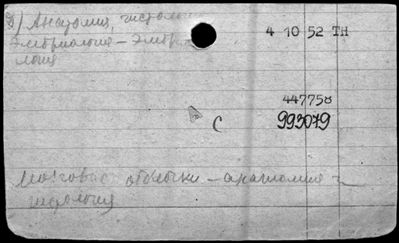 2) Анатомия, гистология
Эмбриология – Эмбрио-
логия
4 10 52 ТН
447758
С 993079
Мозговые оболочки – анатомия –
гистология